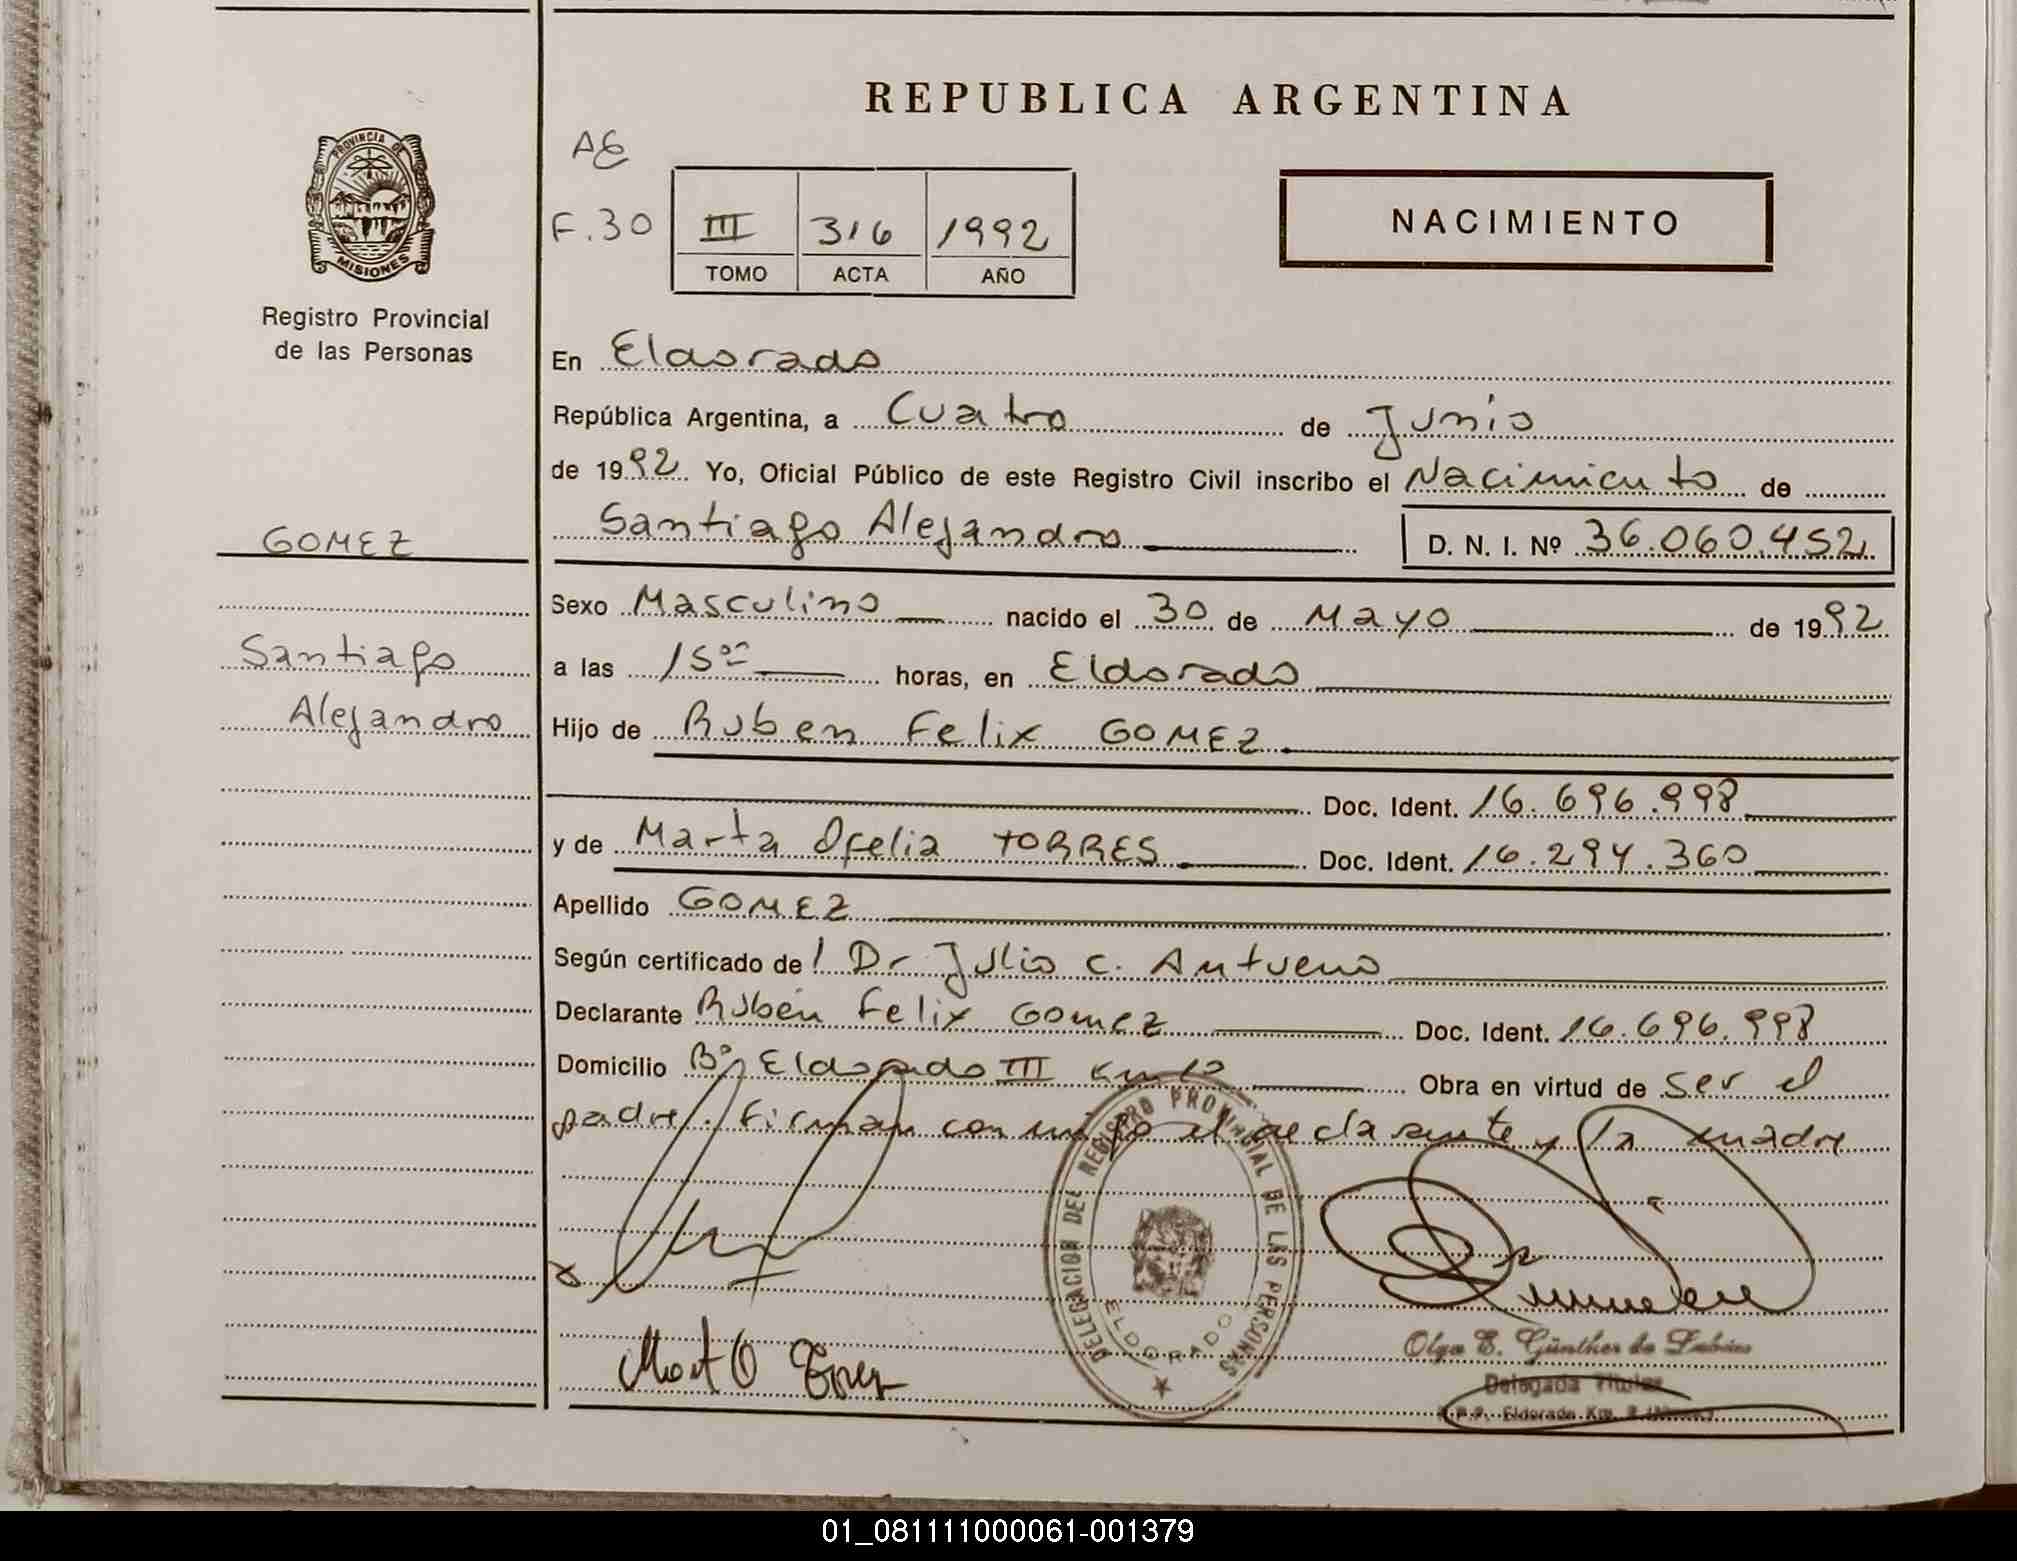 REPUBLICA ARGENTINA
PROVINCIA DE MISIONES
Registro Provincial
de las Personas
AE
F.30
III 316 1992
TOMO ACTA AÑO
NACIMIENTO
En Eldorado
República Argentina, a Cuatro de Junio
de 1992 Yo, Oficial Público de este Registro Civil inscribo el Nacimiento de
GOMEZ
Santiago Alejandro D. N. I. Nº 36.060.452
Sexo Masculino nacido el 30 de Mayo de 1992
Santiago
Alejandro
a las 15⁰⁰ horas, en Eldorado
Hijo de Ruben Felix GOMEZ
Doc. Ident. 16.696.998
y de Marta Ofelia TORRES Doc. Ident. 16.294.360
Apellido GOMEZ
Según certificado del Dr Julio C. Antueno
Declarante Rubén Felix Gomez Doc. Ident. 16.696.998
Domicilio Bº Eldorado III km 10 Obra en virtud de ser el
padre. Firman conmigo el declarante y la madre
DELEGACION DEL REGISTRO PROVINCIAL DE LAS PERSONAS
ELDORADO
Mart O Torres
Olga E. Günther de
Delegada Titular
R.P.P. Eldorado Km.
01_081111000061-001379